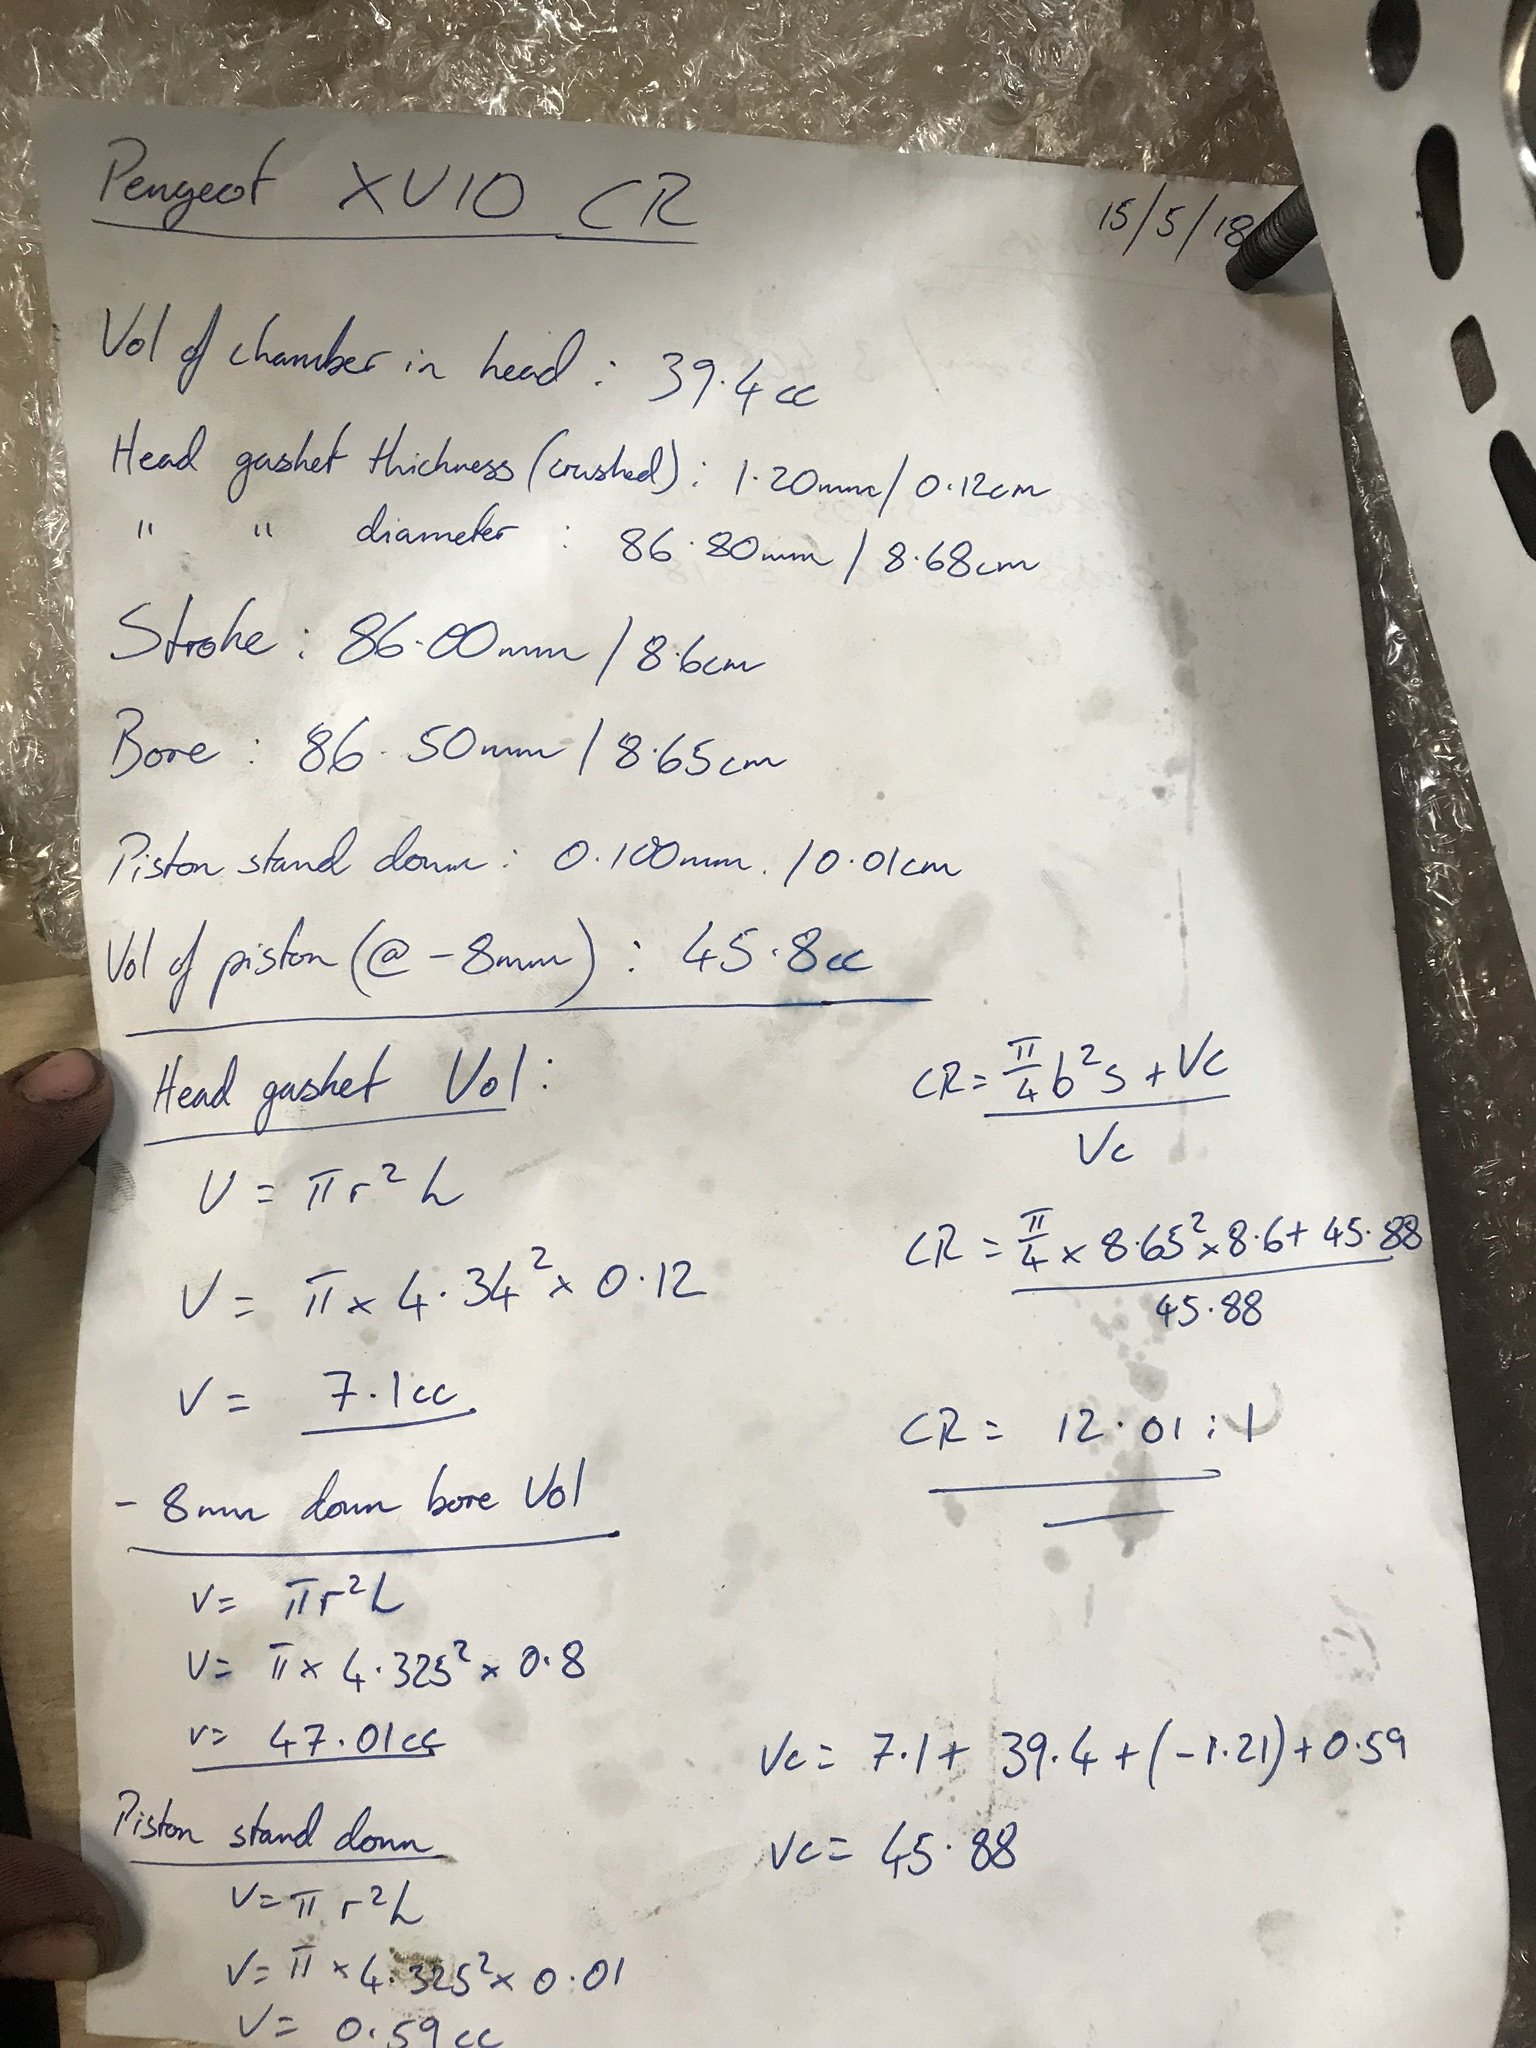 Peugeot XU10 CR
15/5/18
Vol of chamber in head : 39.4cc
Head gasket thickness (crushed) : 1.20mm / 0.12cm
" " diameter : 86.80mm / 8.68cm
Stroke : 86.00mm / 8.6cm
Bore : 86.50mm / 8.65cm
Piston stand down : 0.100mm. / 0.01cm
Vol of piston (@ -8mm) : 45.8cc
Head gasket Vol :
V = πr²h
V = π x 4.34² x 0.12
V = 7.1cc
- 8mm down bore Vol
V= πr²h
V= π x 4.325² x 0.8
V= 47.01cc
Piston stand down
V= π r²h
V= π x 4.325² x 0.01
V= 0.59cc
CR= π/4 b²s + Vc
Vc
CR = π/4 x 8.65² x 8.6 + 45.88
45.88
CR = 12.01 : 1
Vc= 7.1 + 39.4 + (-1.21) + 0.59
Vc= 45.88